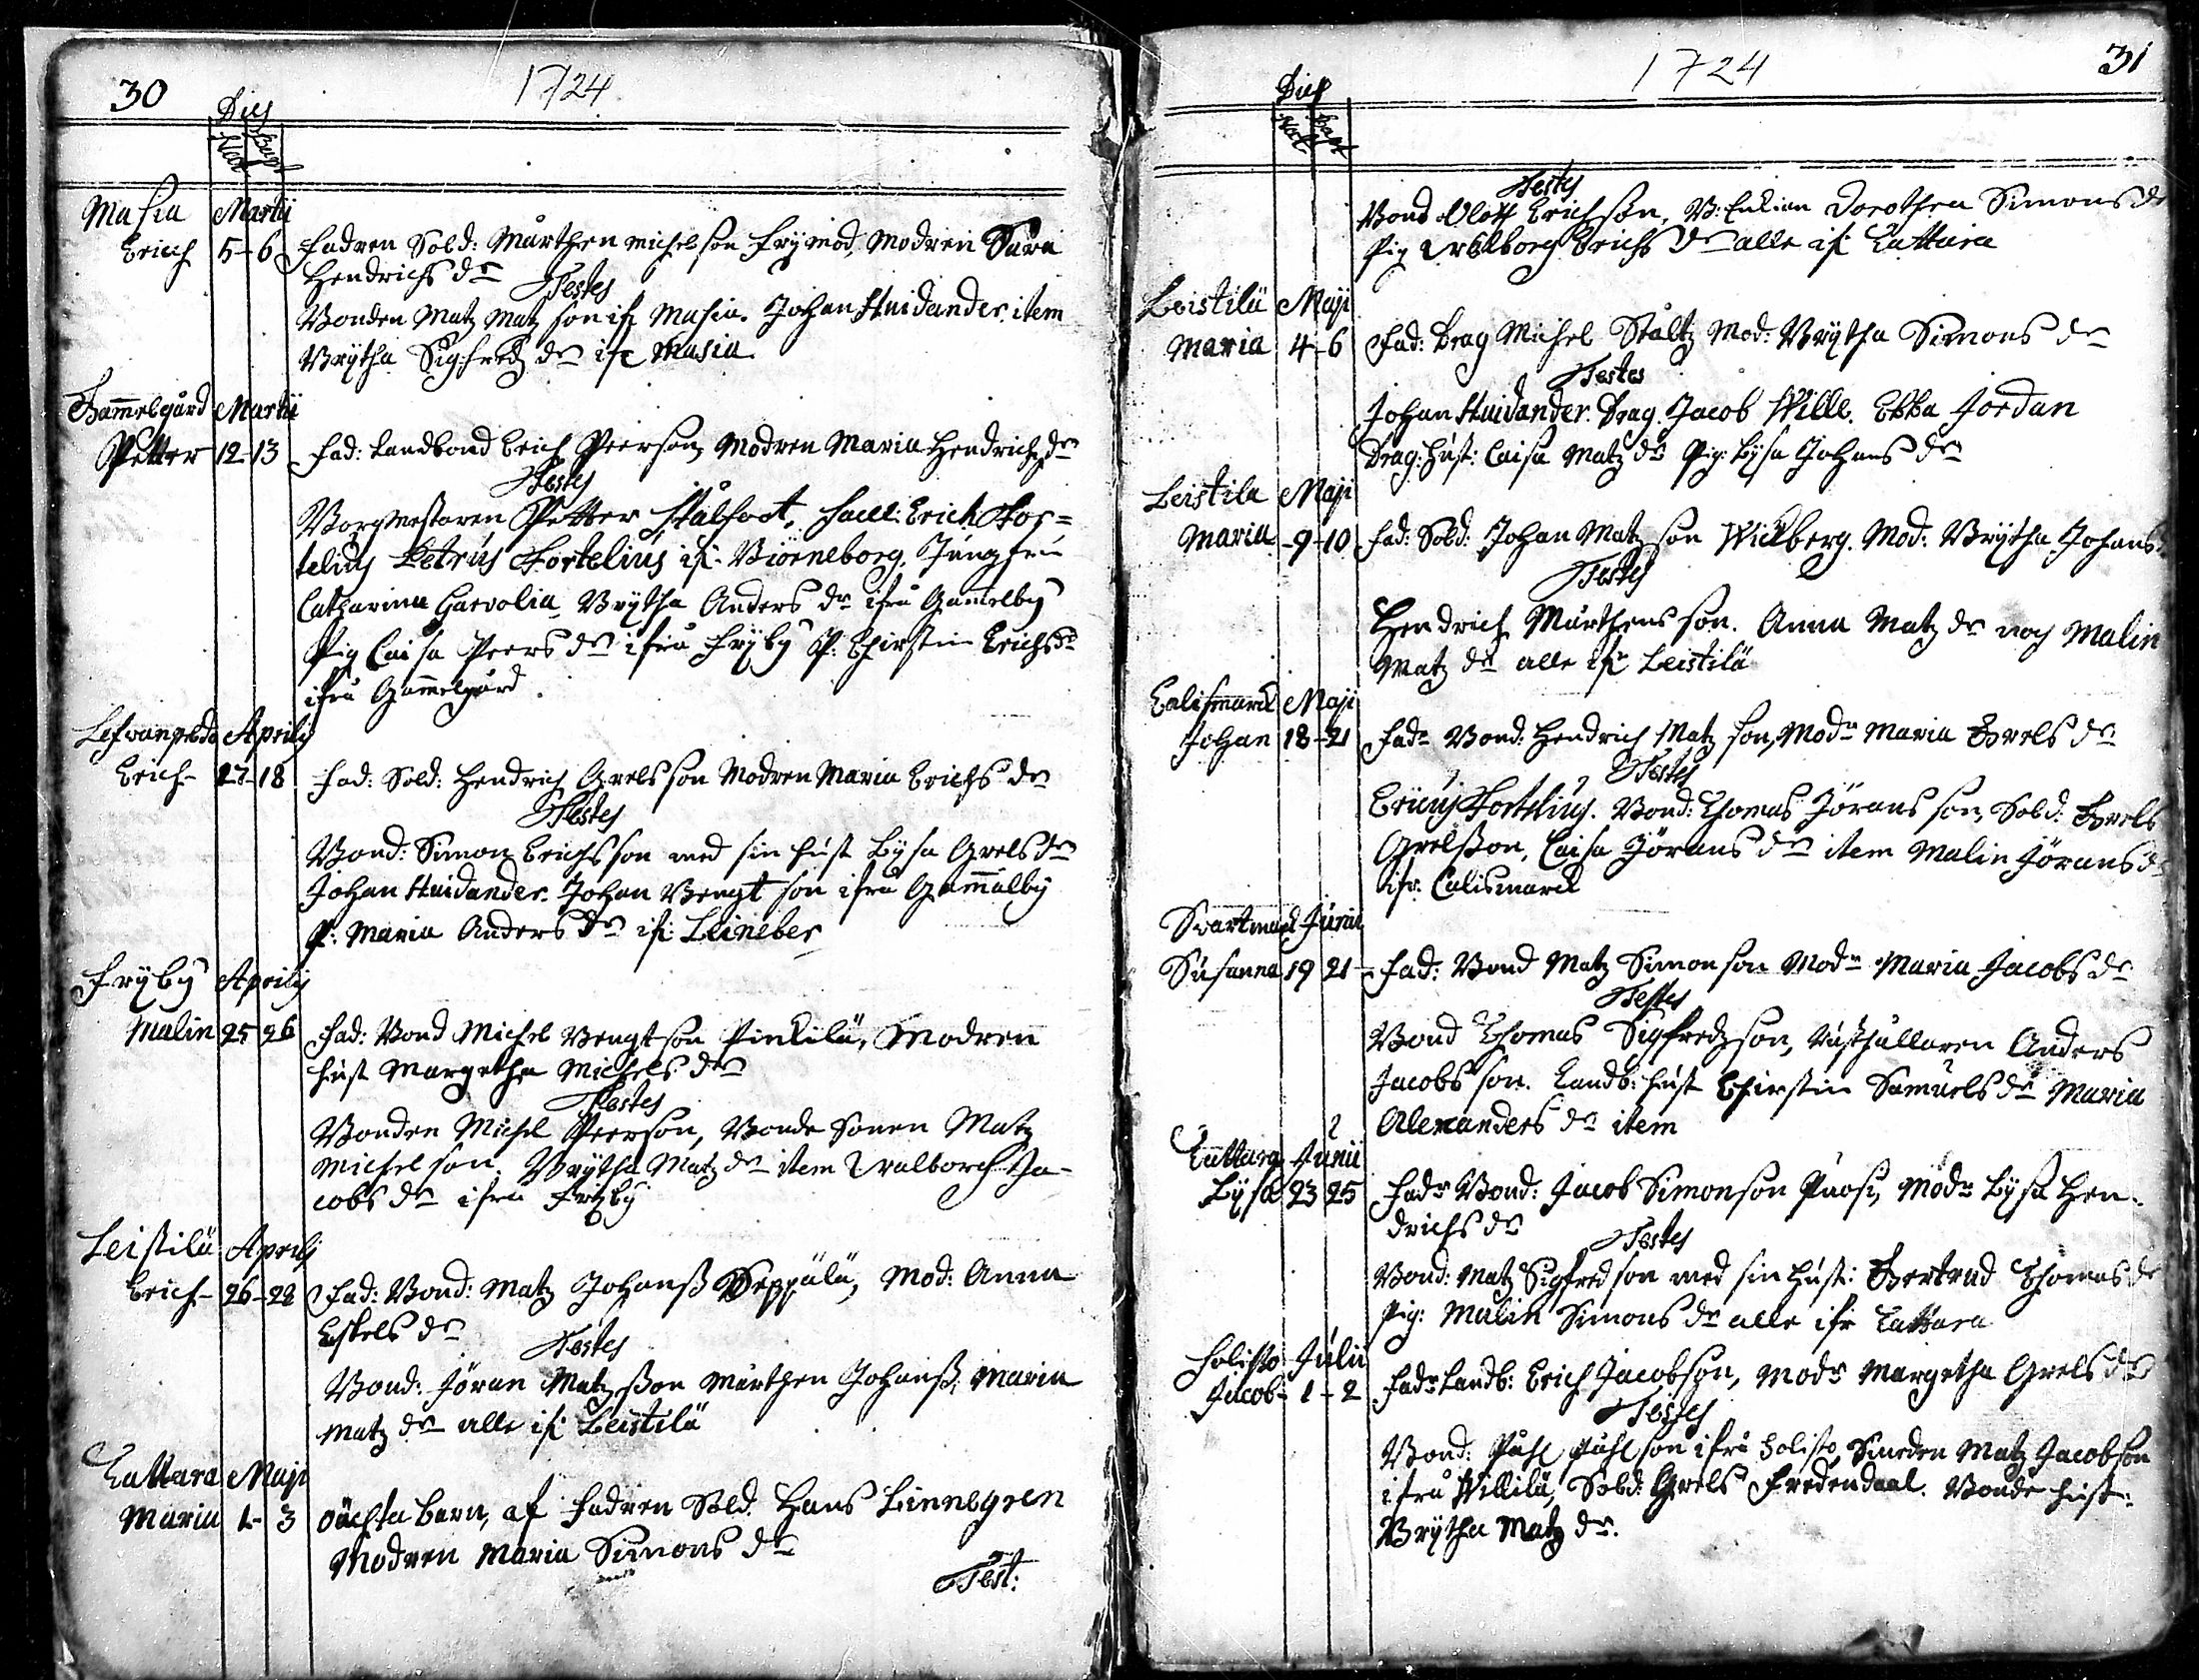 30
1724
Dies
Nat Bapt
Masia Martii
Erich 5-6 Fadren Sold: Mårthen Michelson Frijmod, Modren Sara
Hendrichs dr
Testes
Bonden Matz Matz son ifr Masia. Johan Huidander. item
Brÿtha Sigfredz dr ifr Masia
Gam̄elgård Martii
Petter 12-13 Fad: Landbond Erich Peerson, Modren Maria Hendrichs dr
Testes
Borgmestaren Petter Stålfoot, Erich For=
telius Petrus Fortelius ifr: Biörneborg, Jungfru
Catharina Brÿtha Anders dr ifrå Gam̄elby
Pig Caisa Peers dr ifrå Frÿby P: Chirstin Erichsdr
ifrå Gam̄elgård.
Aprilij
Erich- 17-18 Fad: Sold: Hendrich Grelsson Modren Maria Erichs dr
Testes
Bond: Simon Erichsson med sin hust Lÿsa Grels dr
Johan Huidander. Johan Bengt son ifrå Gam̄alby
P: Maria Anders dr ifr: Leineber
Frÿby Aprilij
Malin 25 26 Fad: Bond Michel Bengtson Pinkilä, Modren
hust Margetha Michels dr
Testes
Bonden Michel Peerson, Bonde Sonen Matz
Michelson. Brÿtha Matz dr item Walborch Ja-
cobs dr ifrå Frÿby
Leistilä Aprilij
Erich- 26-28 Fad: Bond: Matz Johanß Seppälä, Mod: Anna
Eskels dr
Testes
Bond: Jöran Matz ßon Mårthen Johanß, Maria
Matz dr alle ifr: Leistilä
Kattara Maji
Maria 1- 3 oächta barn, af Fadren Sold. Hans Linnegren
Modren Maria Simons dr
Test:
1724
31
Dies
Nat Bapt
Testes
Bond Oloff Erichson, B: Enkian Dorothea Simons dr
Pig Walborg Erichs dr alle ifr: Kattara
Leistilä Maji
Maria 4-6 Fad: Drag Michel Ståltz Mod: Brÿtha Simons dr
Testes
Johan Huidander. Drag. Jacob Wille. Ebba Jordan
Drag: hust: Caisa Matz dr Pig: Lÿsa Johans dr
Leistila Maji
Maria -9-10 Fad: Sold: Johan Matz son Wickberg. Mod: Brÿtha Johans
Testes
Hendrich Mårthens son. Anna Matz dr och Malin
Matz dr alle ifr Leistilä
Calismarck Maji
Johan 18-21 Fadr Bond: Hendrich Matz son, Modr Maria Grels dr
Testes
Ericus Fortelius. Bond: Thomas Jörans son, Sold: Grels
Grelsson, Caisa Jörans dr item Malin Jörans dr
ifr: Calismarck
Svartmarck Junii
Susanna 19 21- Fad: Bond Matz Simonson Modr Maria Jacobs dr
Testes
Bond Thomas Sigfredzson, Rusthållaren Anders
Jacobs son. Landb: hust Chirstin Samuels dr Maria
Alexanders dr item
Kattara Junii
Lÿsa 23 25 Fadr Bond: Jacob Simonson Paosi, Modr Lÿsa Hen-
drichs dr
Testes
Bond: Matz Sigfredson med sin hust: Gertrud Thomas dr
Pig: Malin Simons dr alle ifr Kattara
Holisto Julii
Jacob- 1-2 Fadr Landb: Erich Jacobson, Modr Margetha Grels dr
Testes
Bond: Påhl Påhlson ifrå Holisto, Smeden Matz Jacobson
ifrå Willilä, Sold: Grels Fredendaal. Bonde hust:
Brÿtha Matz dr.